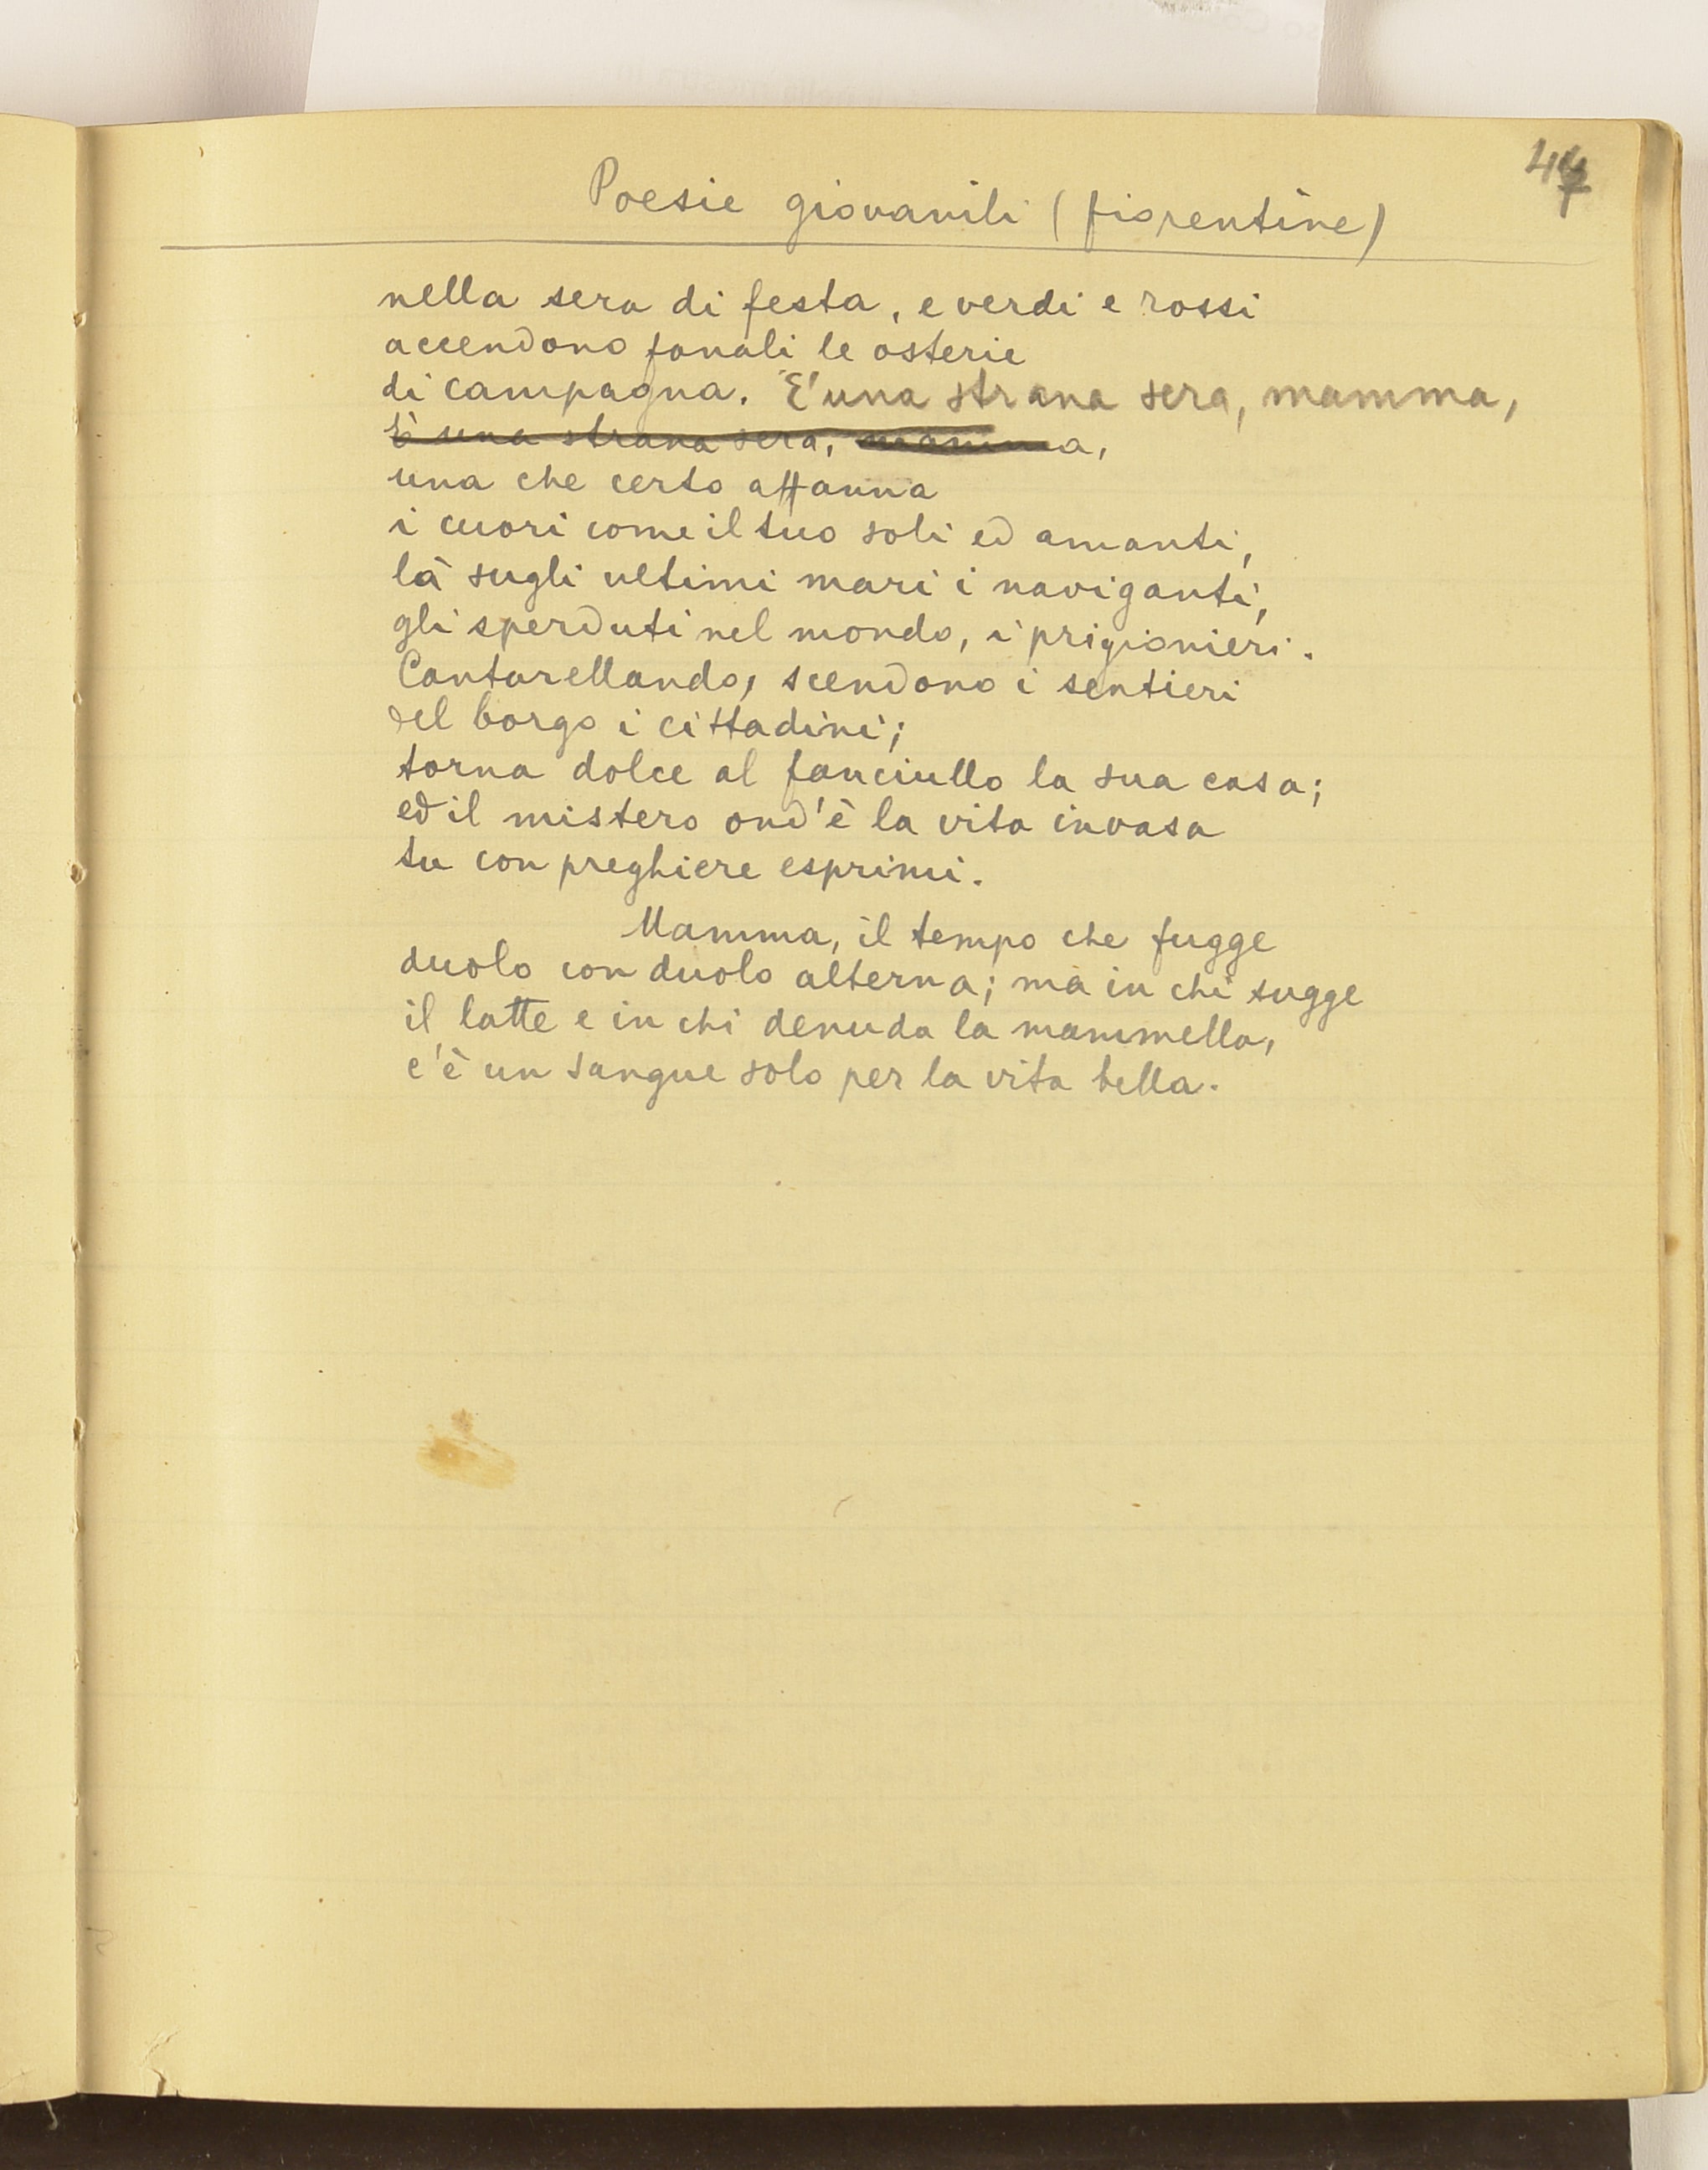 Poesie giovanili (fiorentine)
nella sera di festa, e verdi e rossi
accendono fanali le osterie
di campagna. E' una strana sera, mamma,
È una strana sera, mamma,
una che certo affanna
i cuori come il tuo soli ed amanti,
là sugli ultimi mari i naviganti,
gli sperduti nel mondo, i prigionieri.
Cantarellando, scendono i sentieri
del borgo i cittadini;
torna dolce al fanciullo la sua casa;
ed il mistero ond'è la vita invasa
tu con preghiere esprimi.
Mamma, il tempo che fugge
duolo con duolo alterna; ma in chi sugge
il latte e in chi denuda la mammella,
c'è un sangue solo per la vita bella.